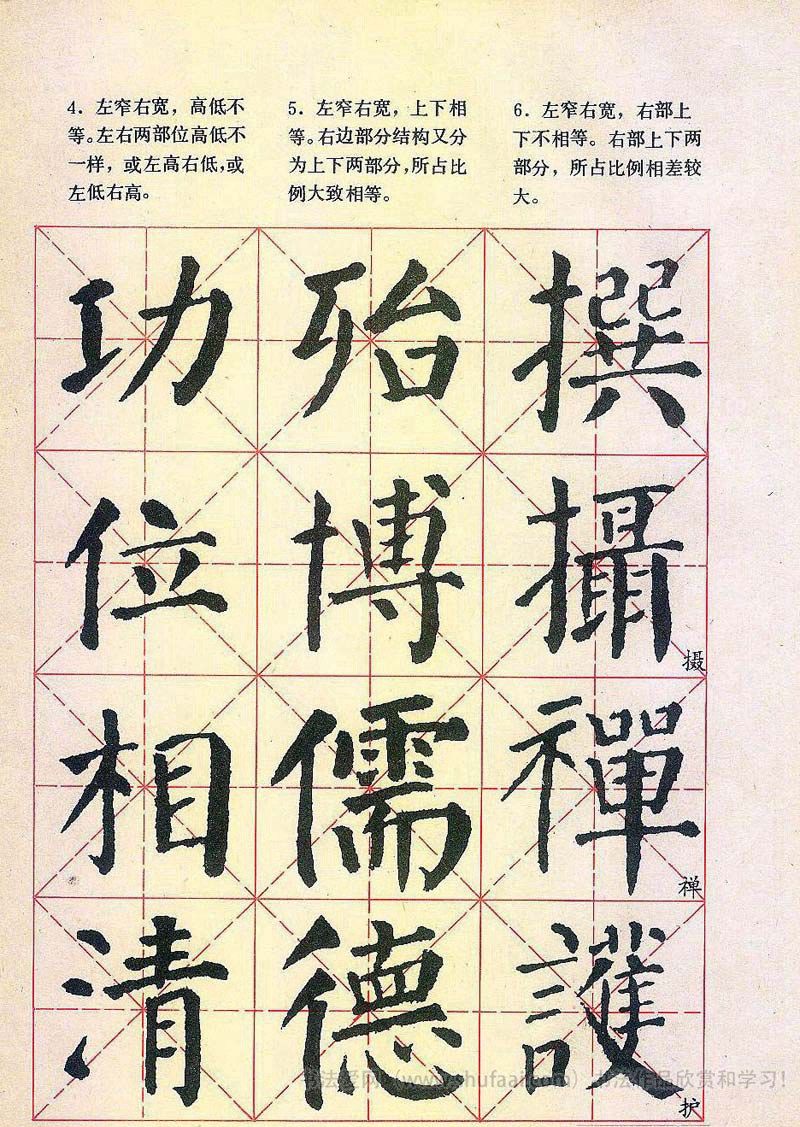 4．左窄右宽，高低不
等。左右两部位高低不
一样，或左高右低，或
左低右高。
5．左窄右宽，上下相
等。右边部分结构又分
为上下两部分，所占比
例大致相等。
6．左窄右宽，右部上
下不相等。右部上下两
部分，所占比例相差较
大。
功 殆 撰
位 博 攝
摄
相 儒 禪
禅
清 德 護
护
书法爱网（www.shufaai.com）书法作品欣赏和学习！